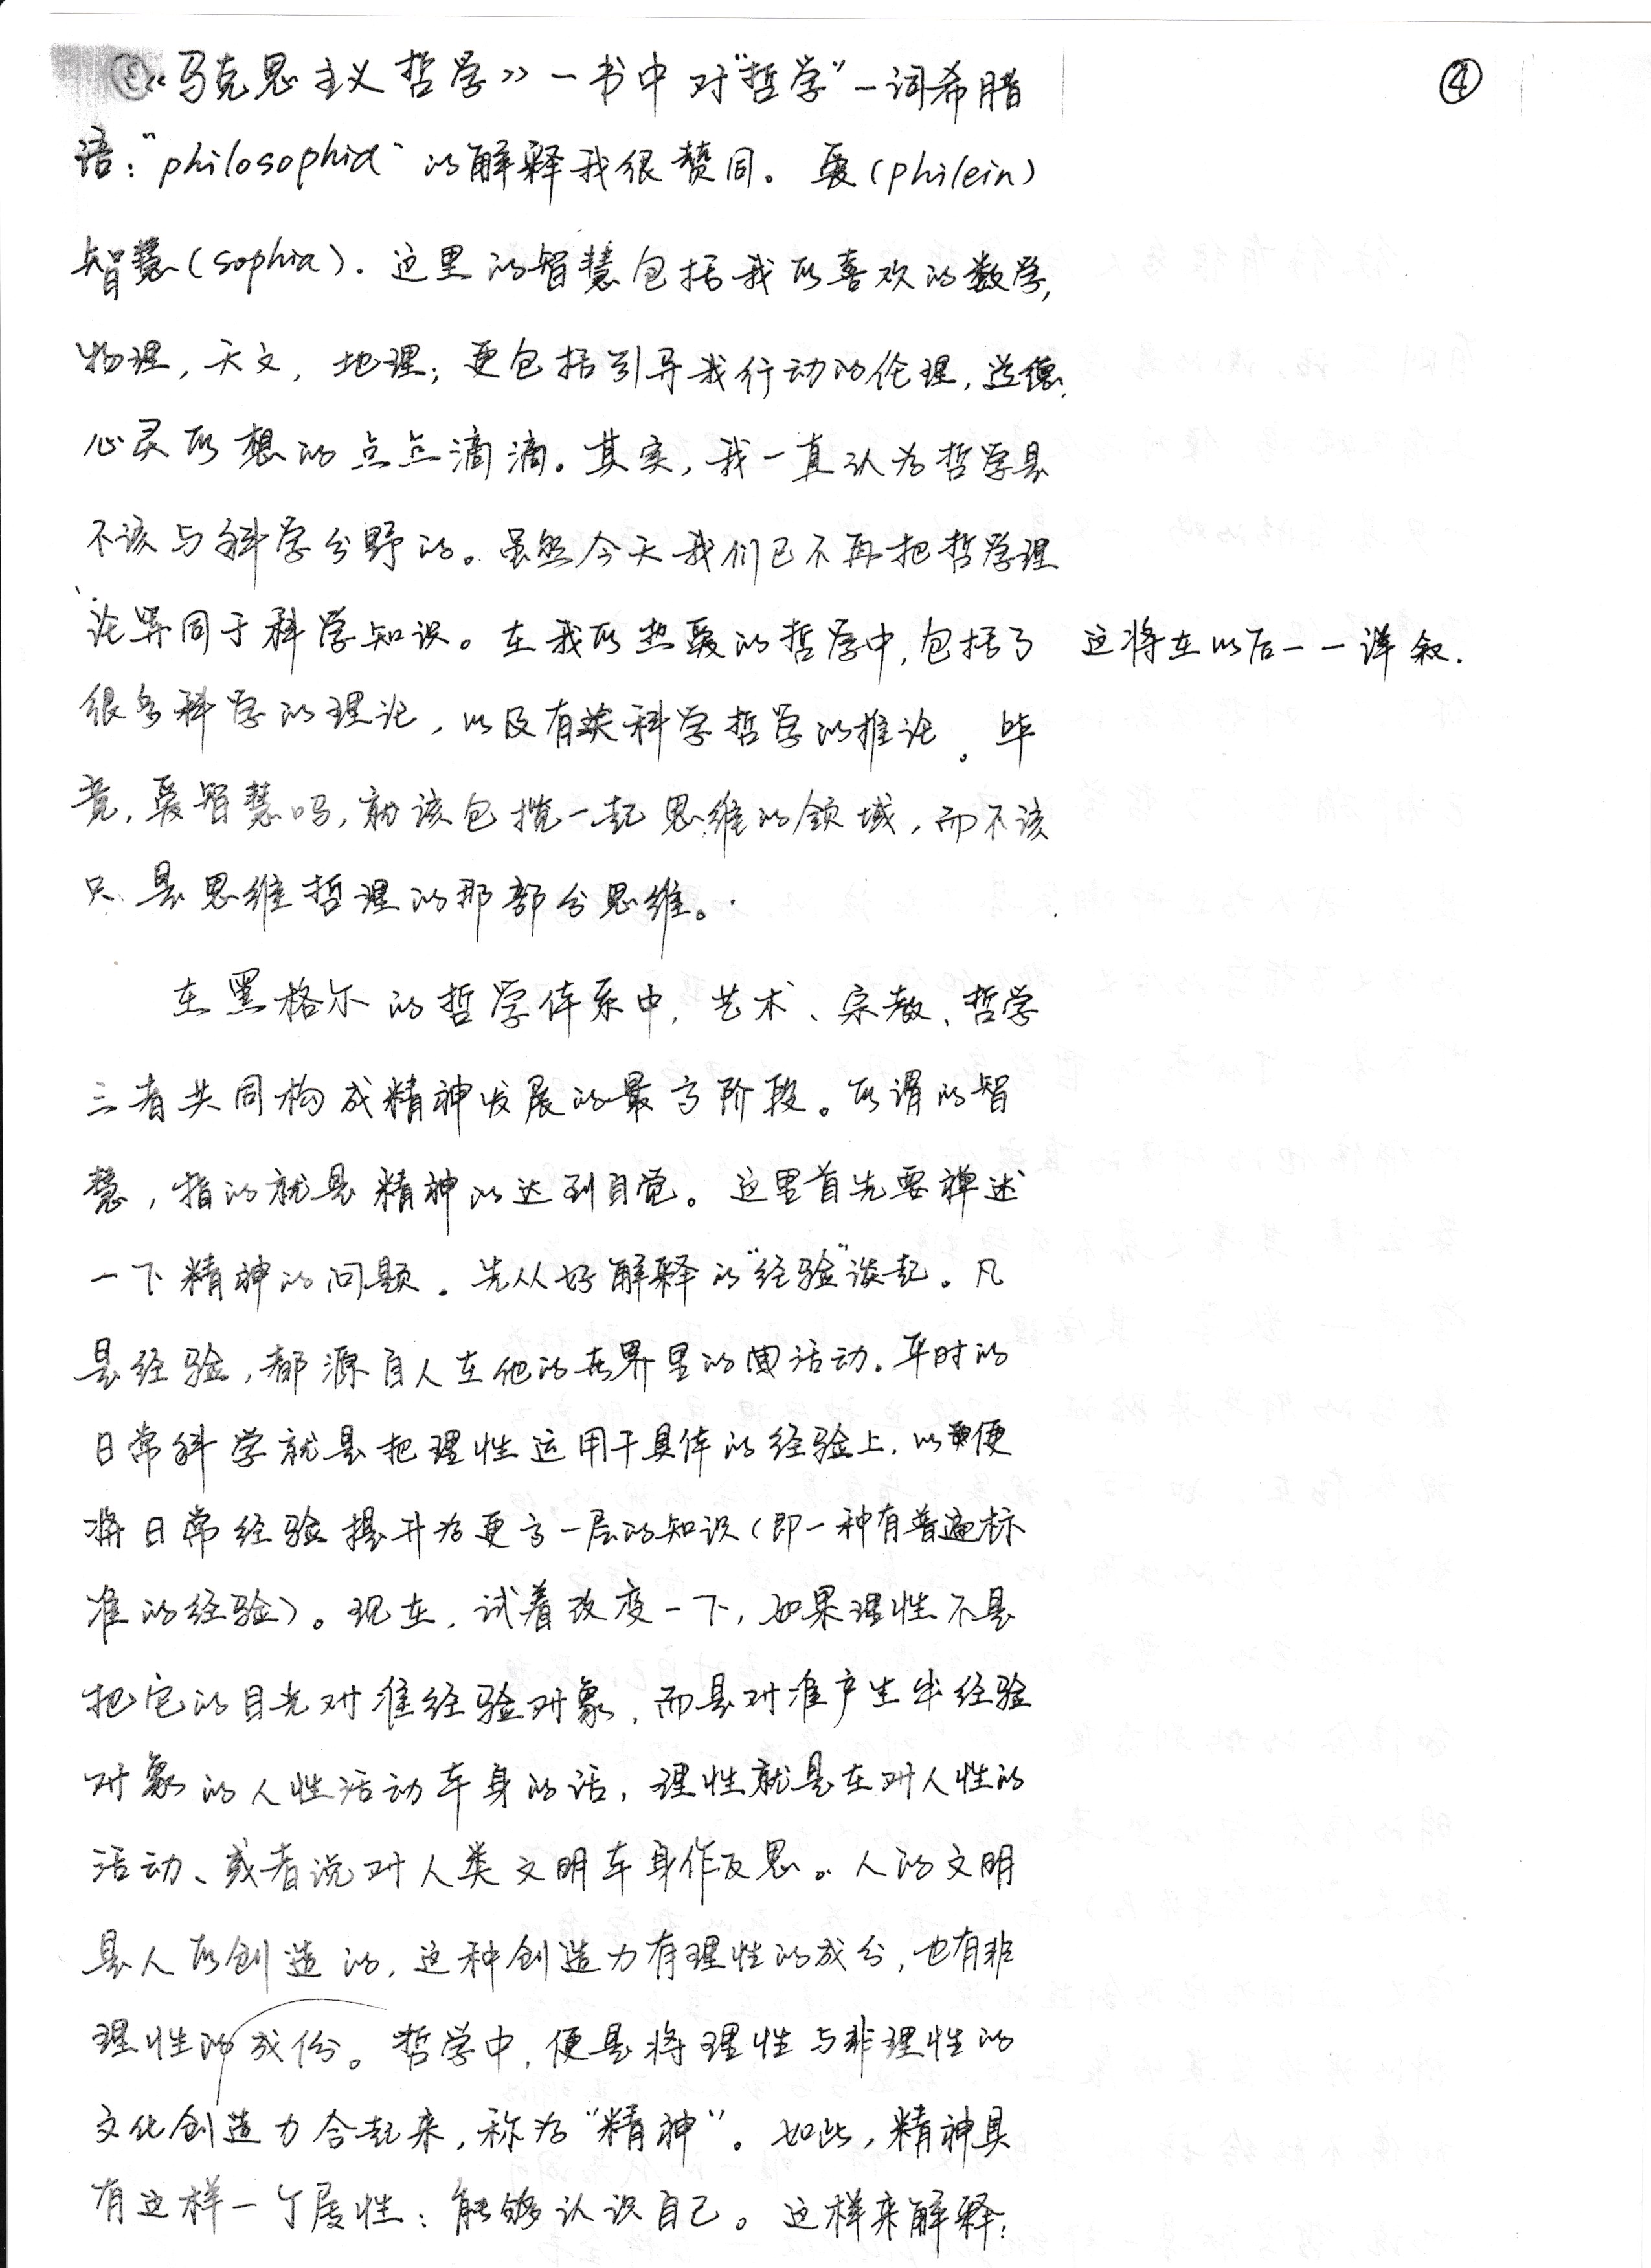 ④
③《马克思主义哲学》一书中对"哲学"一词希腊
语："philosophia"的解释我很赞同。爱(philein)
智慧(sophia). 这里的智慧包括我所喜欢的数学,
物理, 天文, 地理; 更包括引导我行动的伦理, 道德,
心灵所想的点点滴滴。其实, 我一直认为哲学是
不该与科学分野的。虽然今天我们已不再把哲学理
论等同于科学知识。在我所热爱的哲学中, 包括了 这将在以后一一详叙.
很多科学的理论, 以及有关科学哲学的推论。毕
竟, 爱智慧吗, 就该包揽一起思维的领域, 而不该
只是思维哲理的那部分思维。
在黑格尔的哲学体系中, 艺术、宗教、哲学
三者共同构成精神发展的最高阶段。所谓的智
慧, 指的就是精神的达到自觉。这里首先要禅述
一下精神的问题. 先从好解释的"经验"谈起。凡
是经验, 都源自人在他的世界里的活动. 平时的
日常科学就是把理性运用于具体的经验上, 以便
将日常经验提升为更高一层的知识(即一种有普遍标
准的经验)。现在, 试着改变一下, 如果理性不是
把它的目光对准经验对象, 而是对准产生出经验
对象的人性活动本身的话, 理性就是在对人性的
活动、或者说对人类文明本身作反思。人的文明
是人所创造的, 这种创造力有理性的成分, 也有非
理性的成份。哲学中, 便是将理性与非理性的
文化创造力合起来, 称为"精神"。如此, 精神具
有这样一个属性: 能够认识自己。这样来解释: